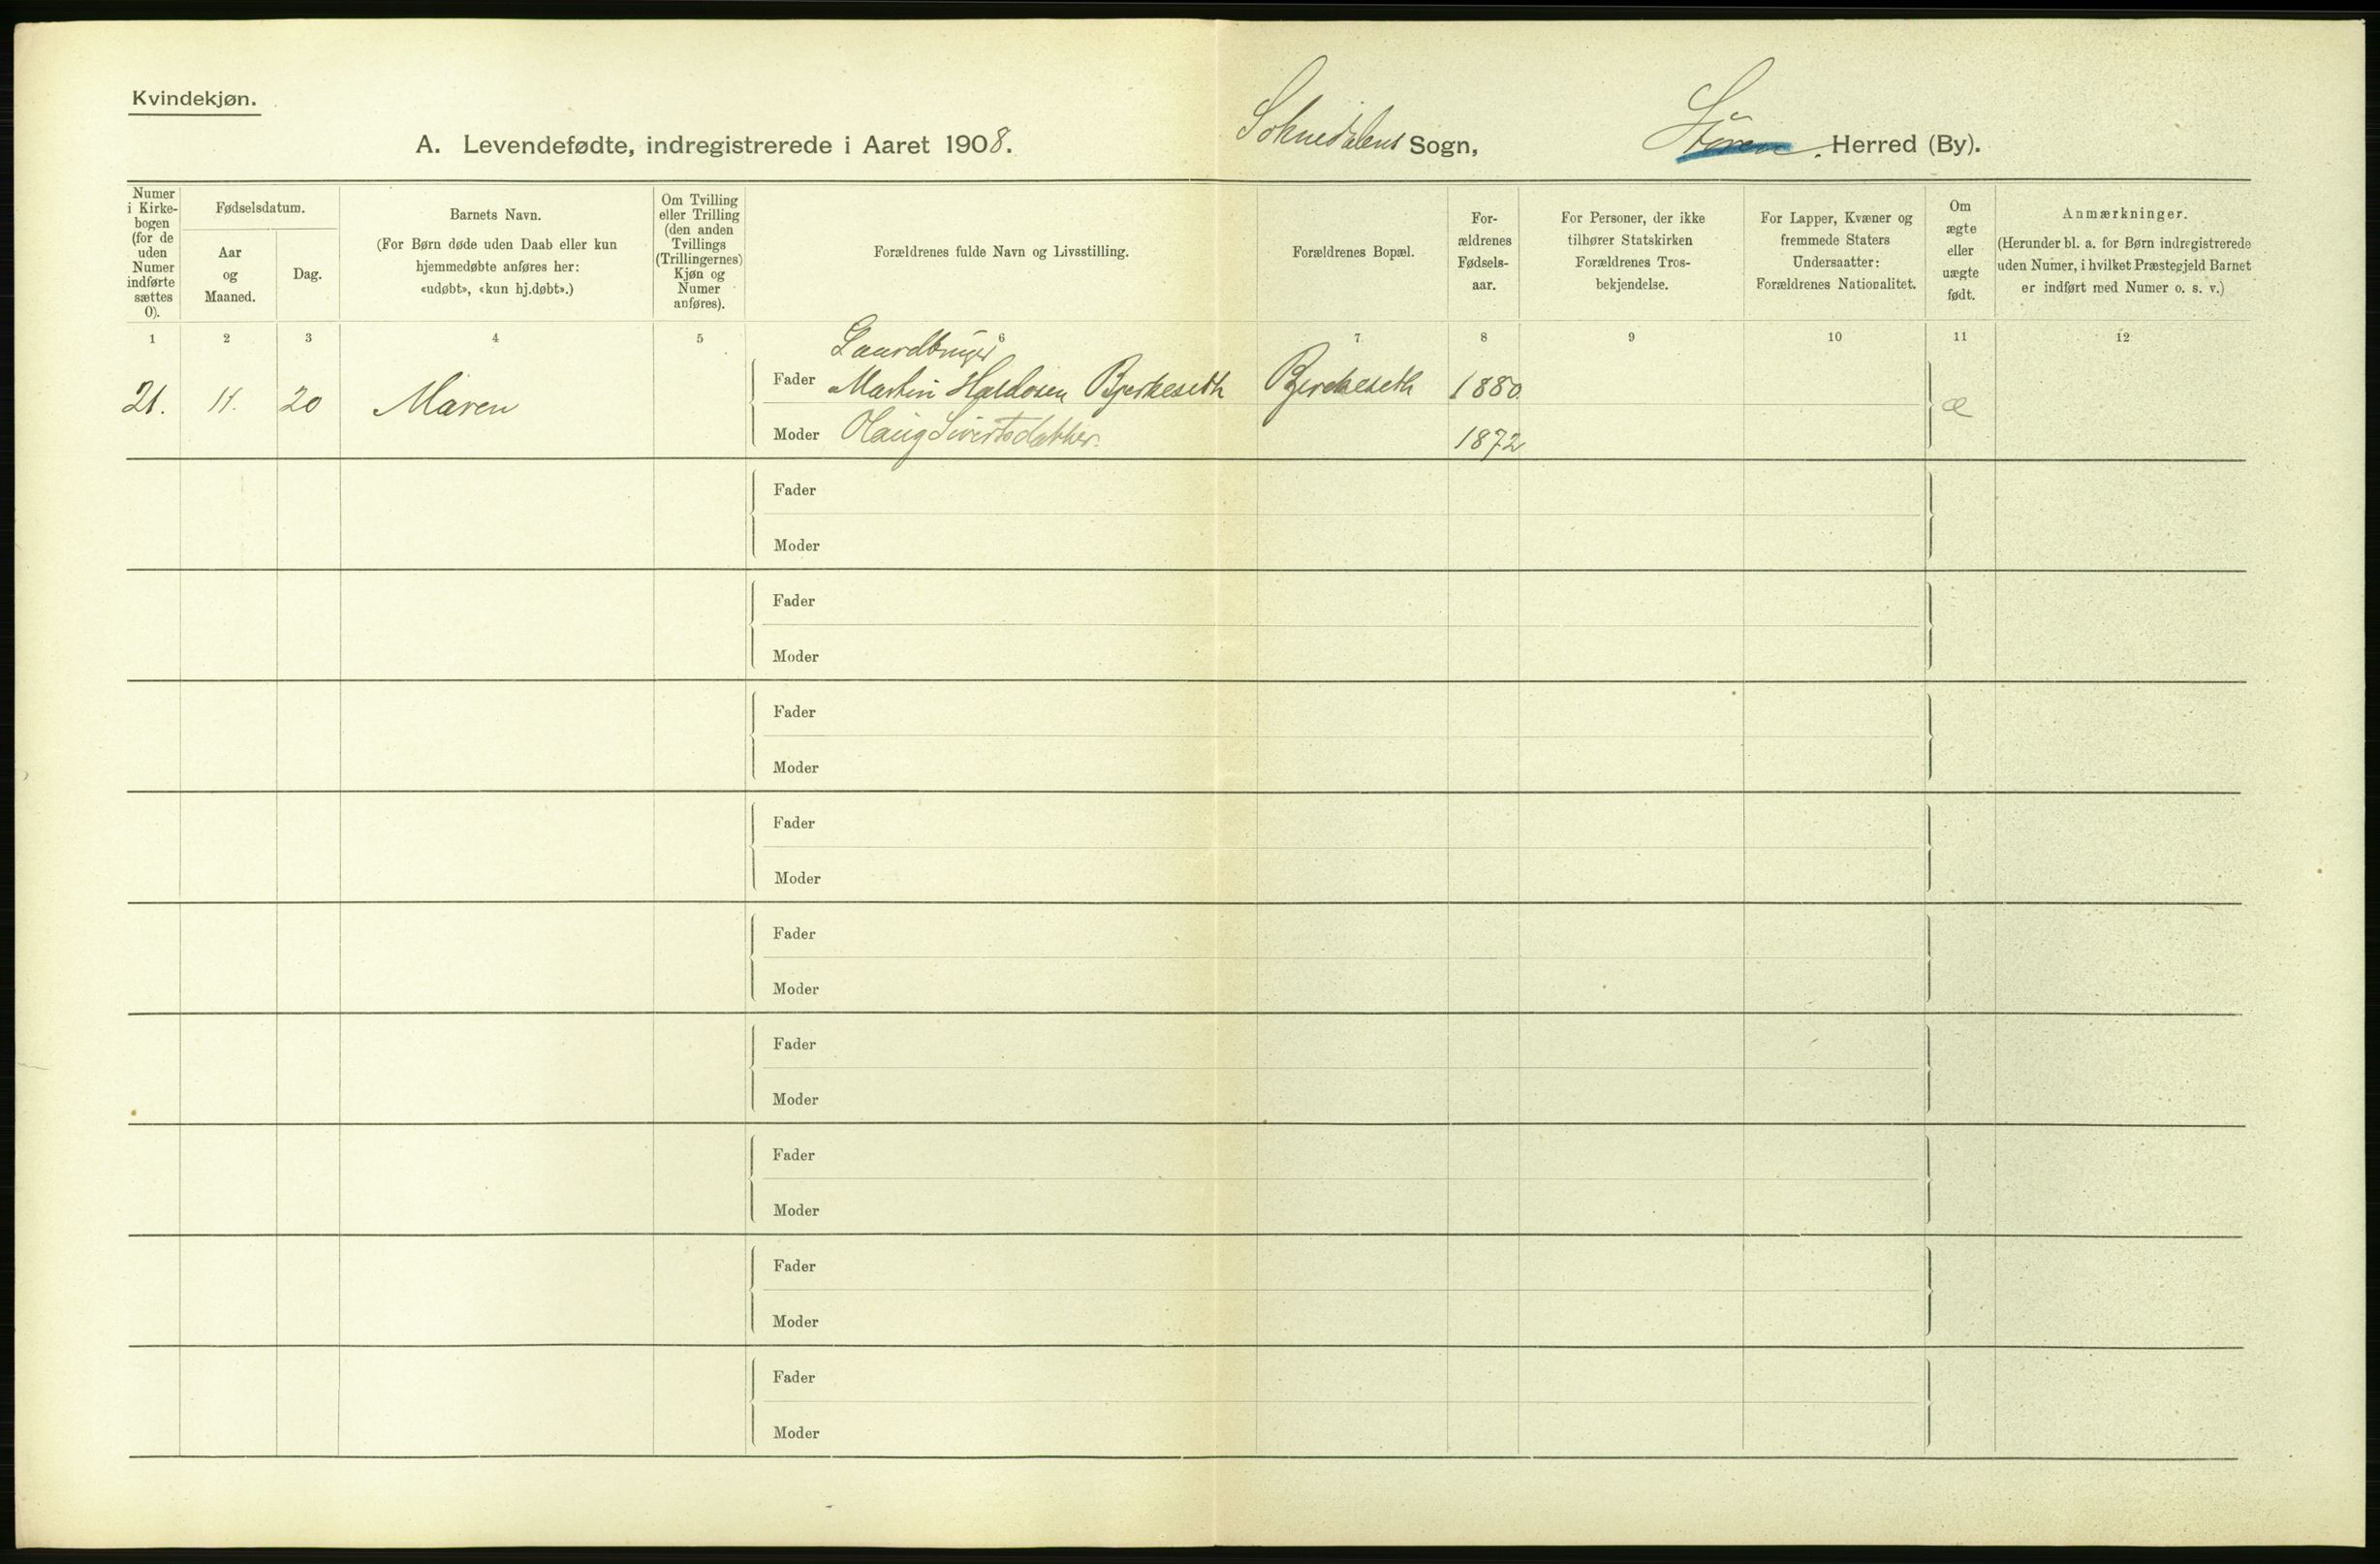 Kvindekjøn.
A. Levendefødte, indregistrerede i Aaret 1908.
Soknedalens Sogn, Støren Herred (By).
Numer i Kirke-bogen (for de uden Numer indførte sættes 0).
Fødselsdatum.
Aar og Maaned.
Dag.
Barnets Navn.
(For Børn døde uden Daab eller kun
hjemmedøbte anføres her:
«udøbt», «kun hj.døbt».)
Om Tvilling
eller Trilling
(den anden
Tvillings
(Trillingernes)
Kjøn og
Numer
anføres).
Forældrenes fulde Navn og Livsstilling.
Forældrenes Bopæl.
For-
ældrenes
Fødsels-
aar.
For Personer, der ikke
tilhører Statskirken
Forældrenes Tros-
bekjendelse.
For Lapper, Kvæner og
fremmede Staters
Undersaatter:
Forældrenes Nationalitet.
Om
ægte
eller
uægte
født.
Anmærkninger.
(Herunder bl. a. for Børn indregistrerede
uden Numer, i hvilket Præstegjeld Barnet
er indført med Numer o. s. v.)
1 2 3 4 5 6 7 8 9 10 11 12
Gaardbruger
21. 11. 20 Maren Fader Martin Haldosen Bjerkeseth Bjerkeseth 1880. æ
Moder Olaug Sivertsdatter. 1872
Fader
Moder
Fader
Moder
Fader
Moder
Fader
Moder
Fader
Moder
Fader
Moder
Fader
Moder
Fader
Moder
Fader
Moder